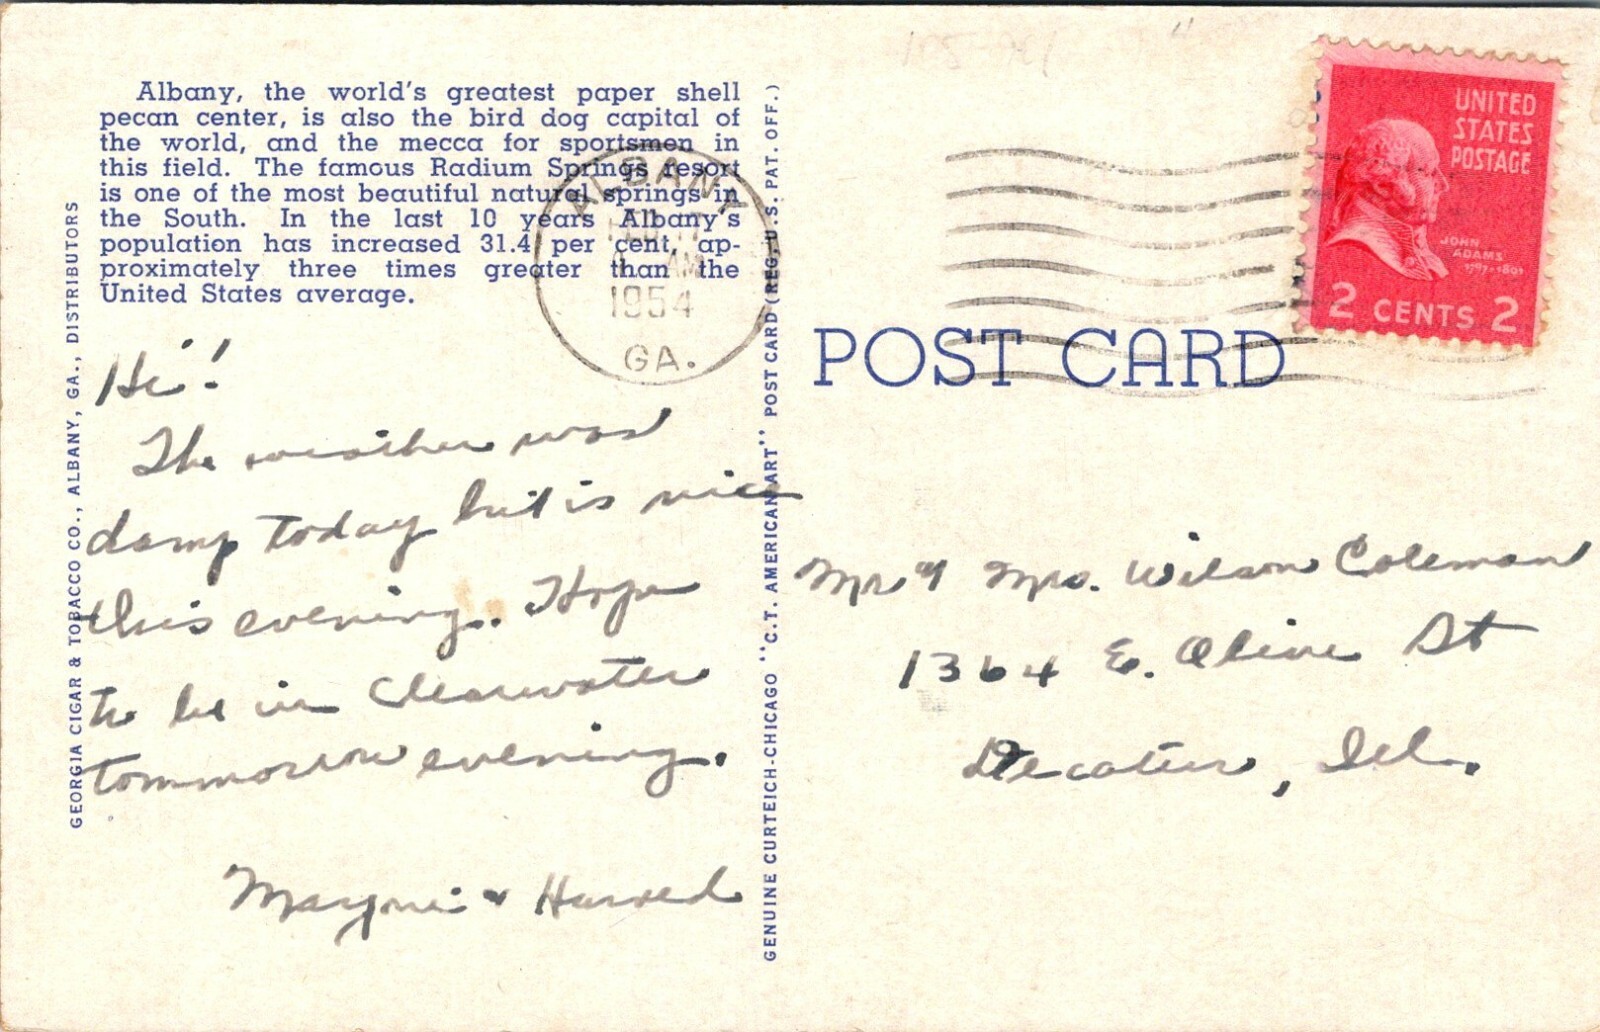 Albany, the world's greatest paper shell
pecan center, is also the bird dog capital of
the world, and the mecca for sportsmen in
this field. The famous Radium Springs resort
is one of the most beautiful natural springs in
the South. In the last 10 years Albany's
population has increased 31.4 per cent, ap-
proximately three times greater than the
United States average.
GEORGIA CIGAR & TOBACCO CO., ALBANY, GA., DISTRIBUTORS
ALBANY
AM
1954
GA.
Hi!
The weather was
damp today but is nice
this evening. Hope
to be in Clearwater
tommorrow evening.
&
GENUINE CURTEICH-CHICAGO "C.T. AMERICAN ART" POST CARD (REG. U.S. PAT. OFF.)
POST CARD
UNITED
STATES
POSTAGE
JOHN
ADAMS
1797-1801
2 CENTS 2
Mr & Mrs. Wilson Coleman
1364 E. Olive St
Decatur, Ill.